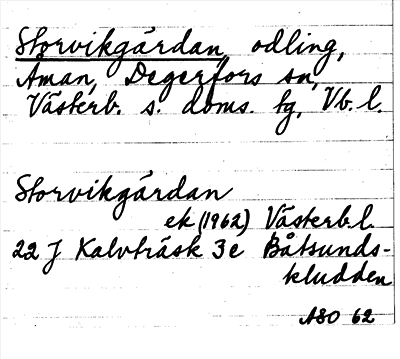 Storvikgärdan, odling,
Åman, Degerfors sn,
Västerb. s. doms. tg, Vb. l.
Storvikgärdan
ek (1962) Västerb.l.
22 J Kalvträsk 3e Båtsunds-
kludden
ASO 62